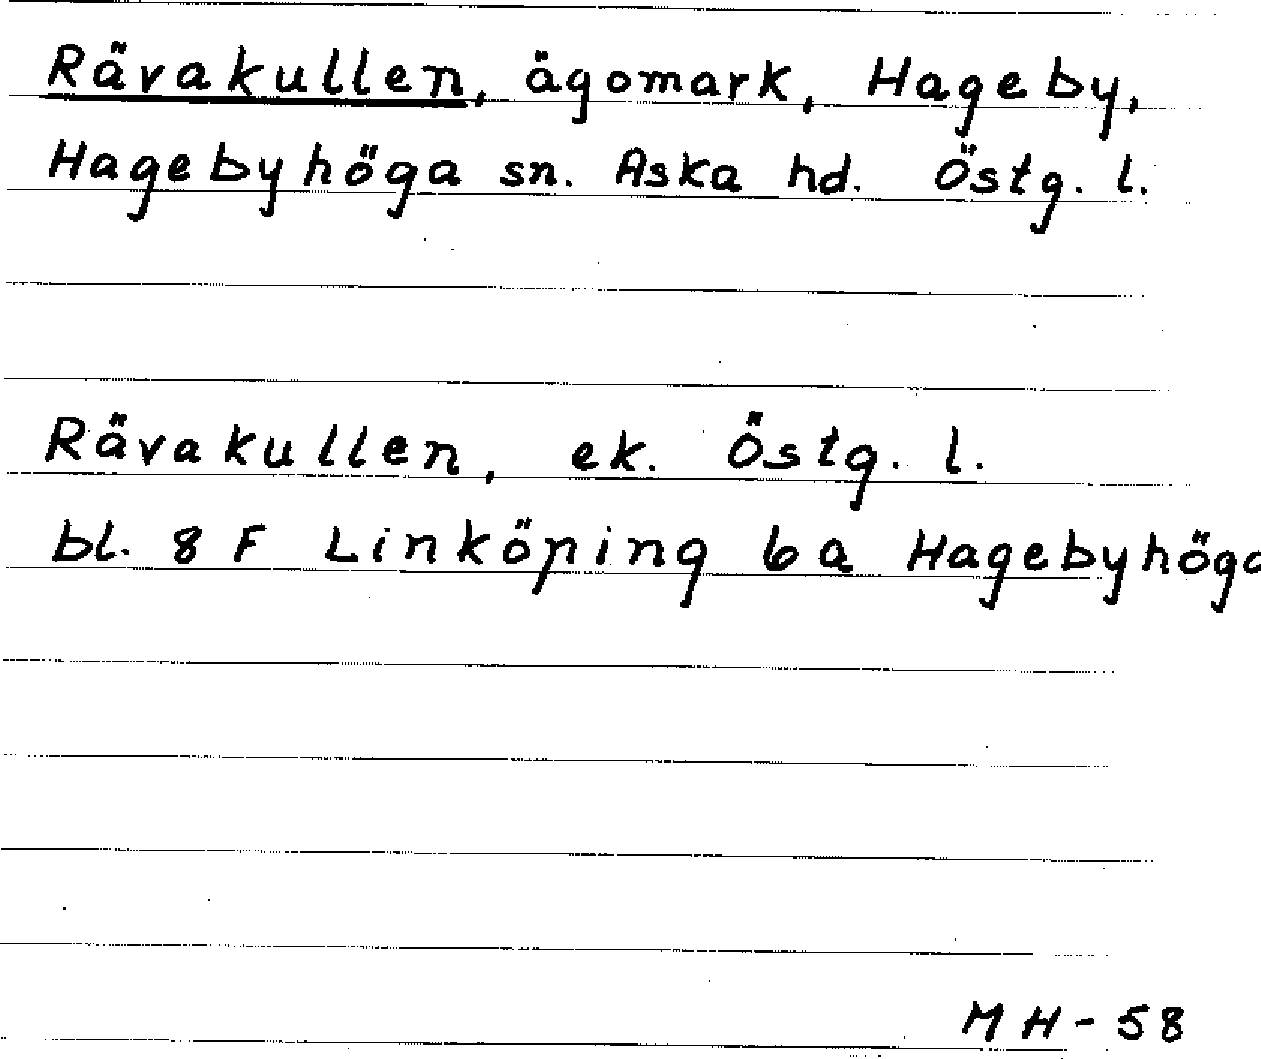 Rävakullen, ägomark, Hageby,
Hagebyhöga sn. Aska hd. Östg. l.
Rävakullen, ek. Östg. l.
bl. 8 F Linköping 6a Hagebyhöga
MH-58